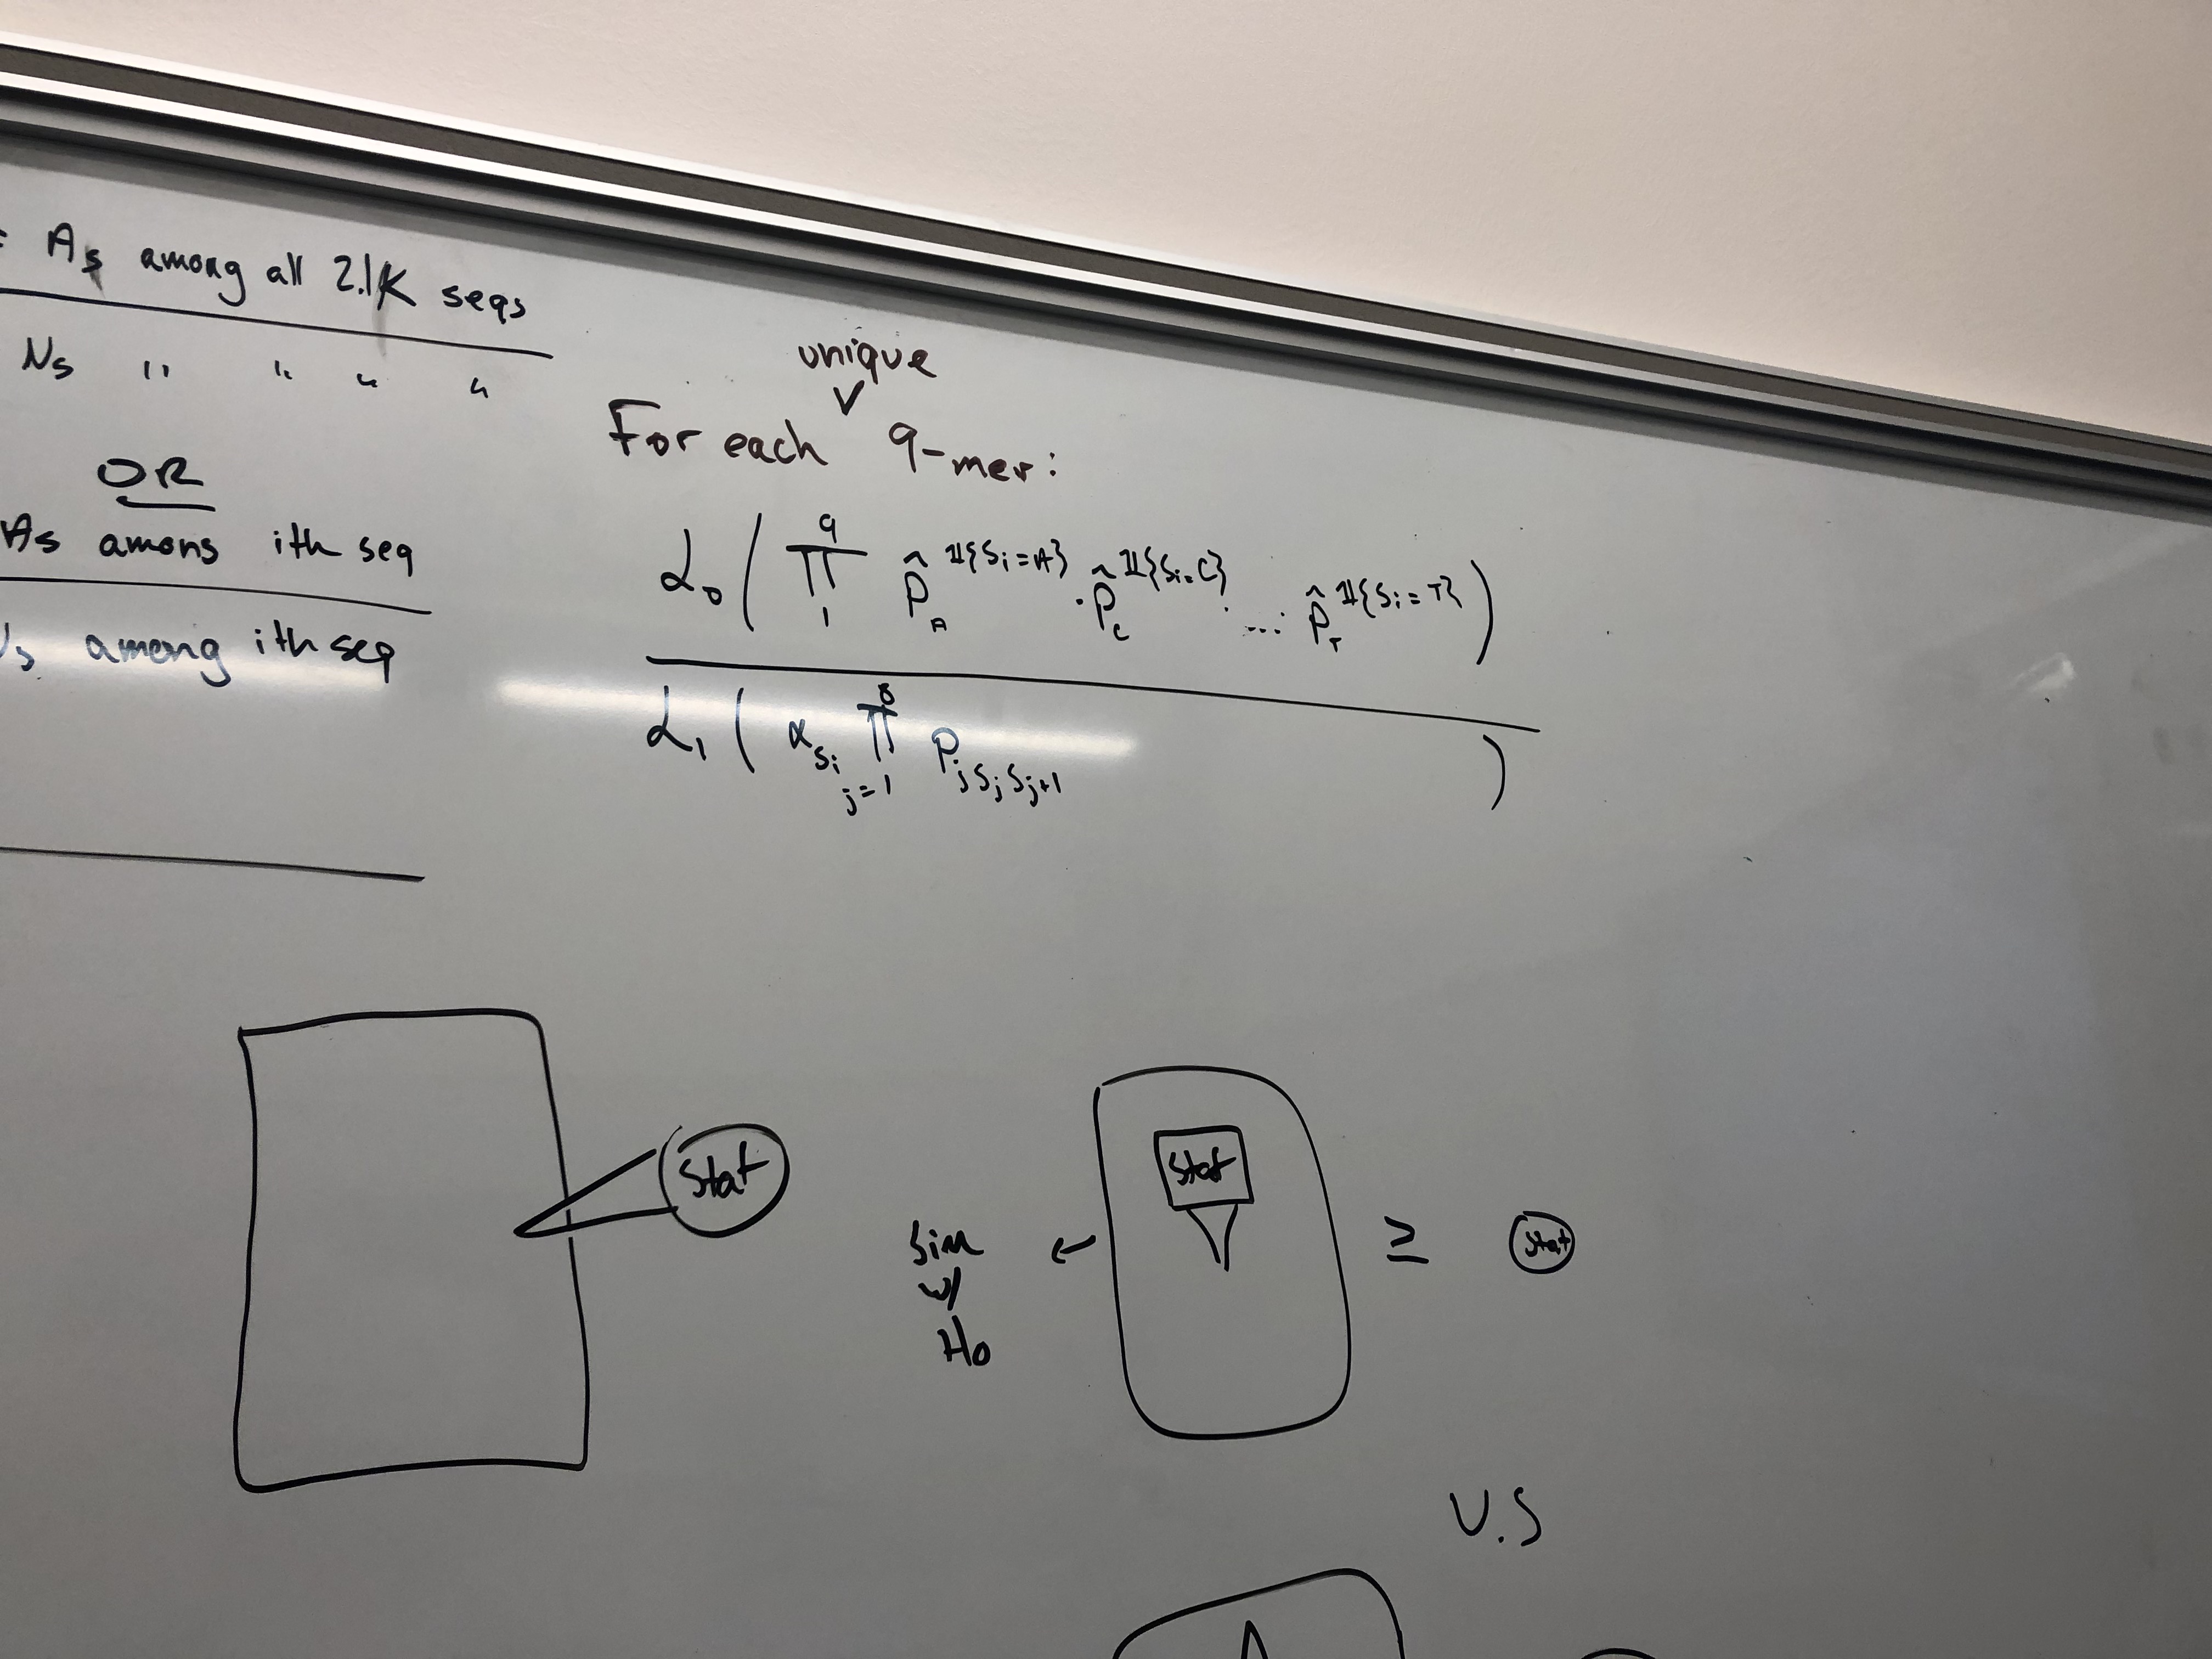 As among all 2.1K seqs
Ns " " " "
OR
As amons ith seq
Ns among ith seq
unique
V
For each 9-mer:
L₀( ∏ 9 1 p̂_A^𝟙{Sᵢ=A} · p̂_C^𝟙{Sᵢ=C} · ...· p̂_T^𝟙{Sᵢ=T} )
L₁( α_Sᵢ ∏ 8 j=1 P_j Sⱼ Sⱼ₊₁ )
Stat
Stat
≥
Stat
Sim
w/
Ho
V.S